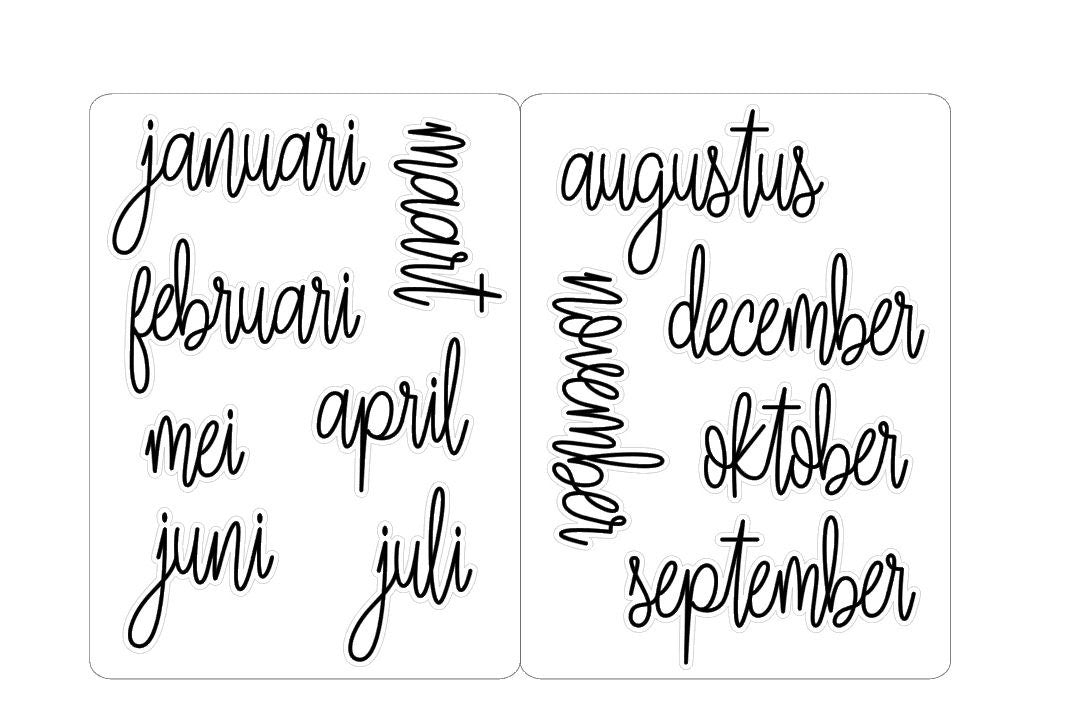 januari
maart
februari
april
mei
juni
juli
augustus
december
november
oktober
september